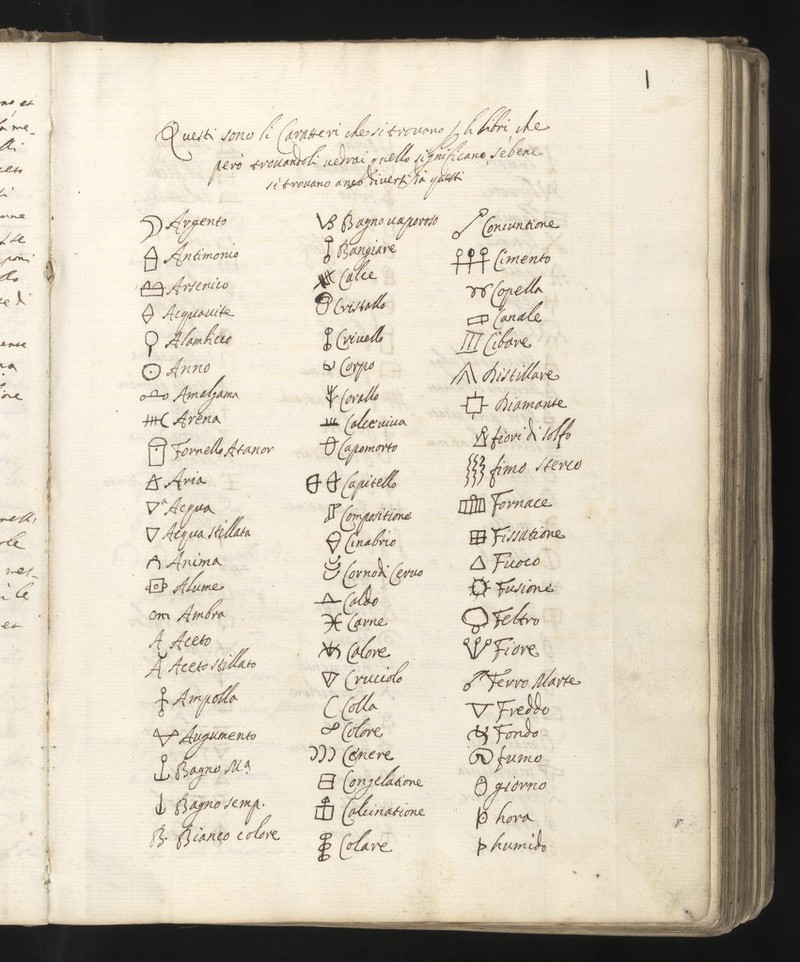 1
Questi sono li Caratteri che si trovano p li libri, che
però trovandoli vedrai quello significano, sebene
si trovano anco diversi da questi
Argento
Antimonio
Arsenico
Acquavite
Alambicco
Anno
Amalgama
Arena
Fornello Atanor
Aria
Acqua
Acqua stillata
Anima
Alume
Ambra
Aceto
Aceto stillato
Ampolla
Augumento
Bagno Ma
Bagno semp.
Bianco colore
Bagno vaporoso
Bangiare
Calce
Cristallo
Crivello
Corpo
Corallo
Calceviva
Capomorto
Capitello
Compositione
Cinabrio
Corno di Cervo
Caldo
Carne
Calore
Cruciolo
Colla
Colore
Cenere
Congelatione
Calcinatione
Colare
Coniuntione
Cimento
Copella
Canale
Cibare
Distillare
Diamante
fiori di solfo
fimo sterco
Fornace
Fissatione
Fuoco
Fusione
Feltro
Fiore
Ferro Marte
Freddo
Fondo
fumo
giorno
hora
humido